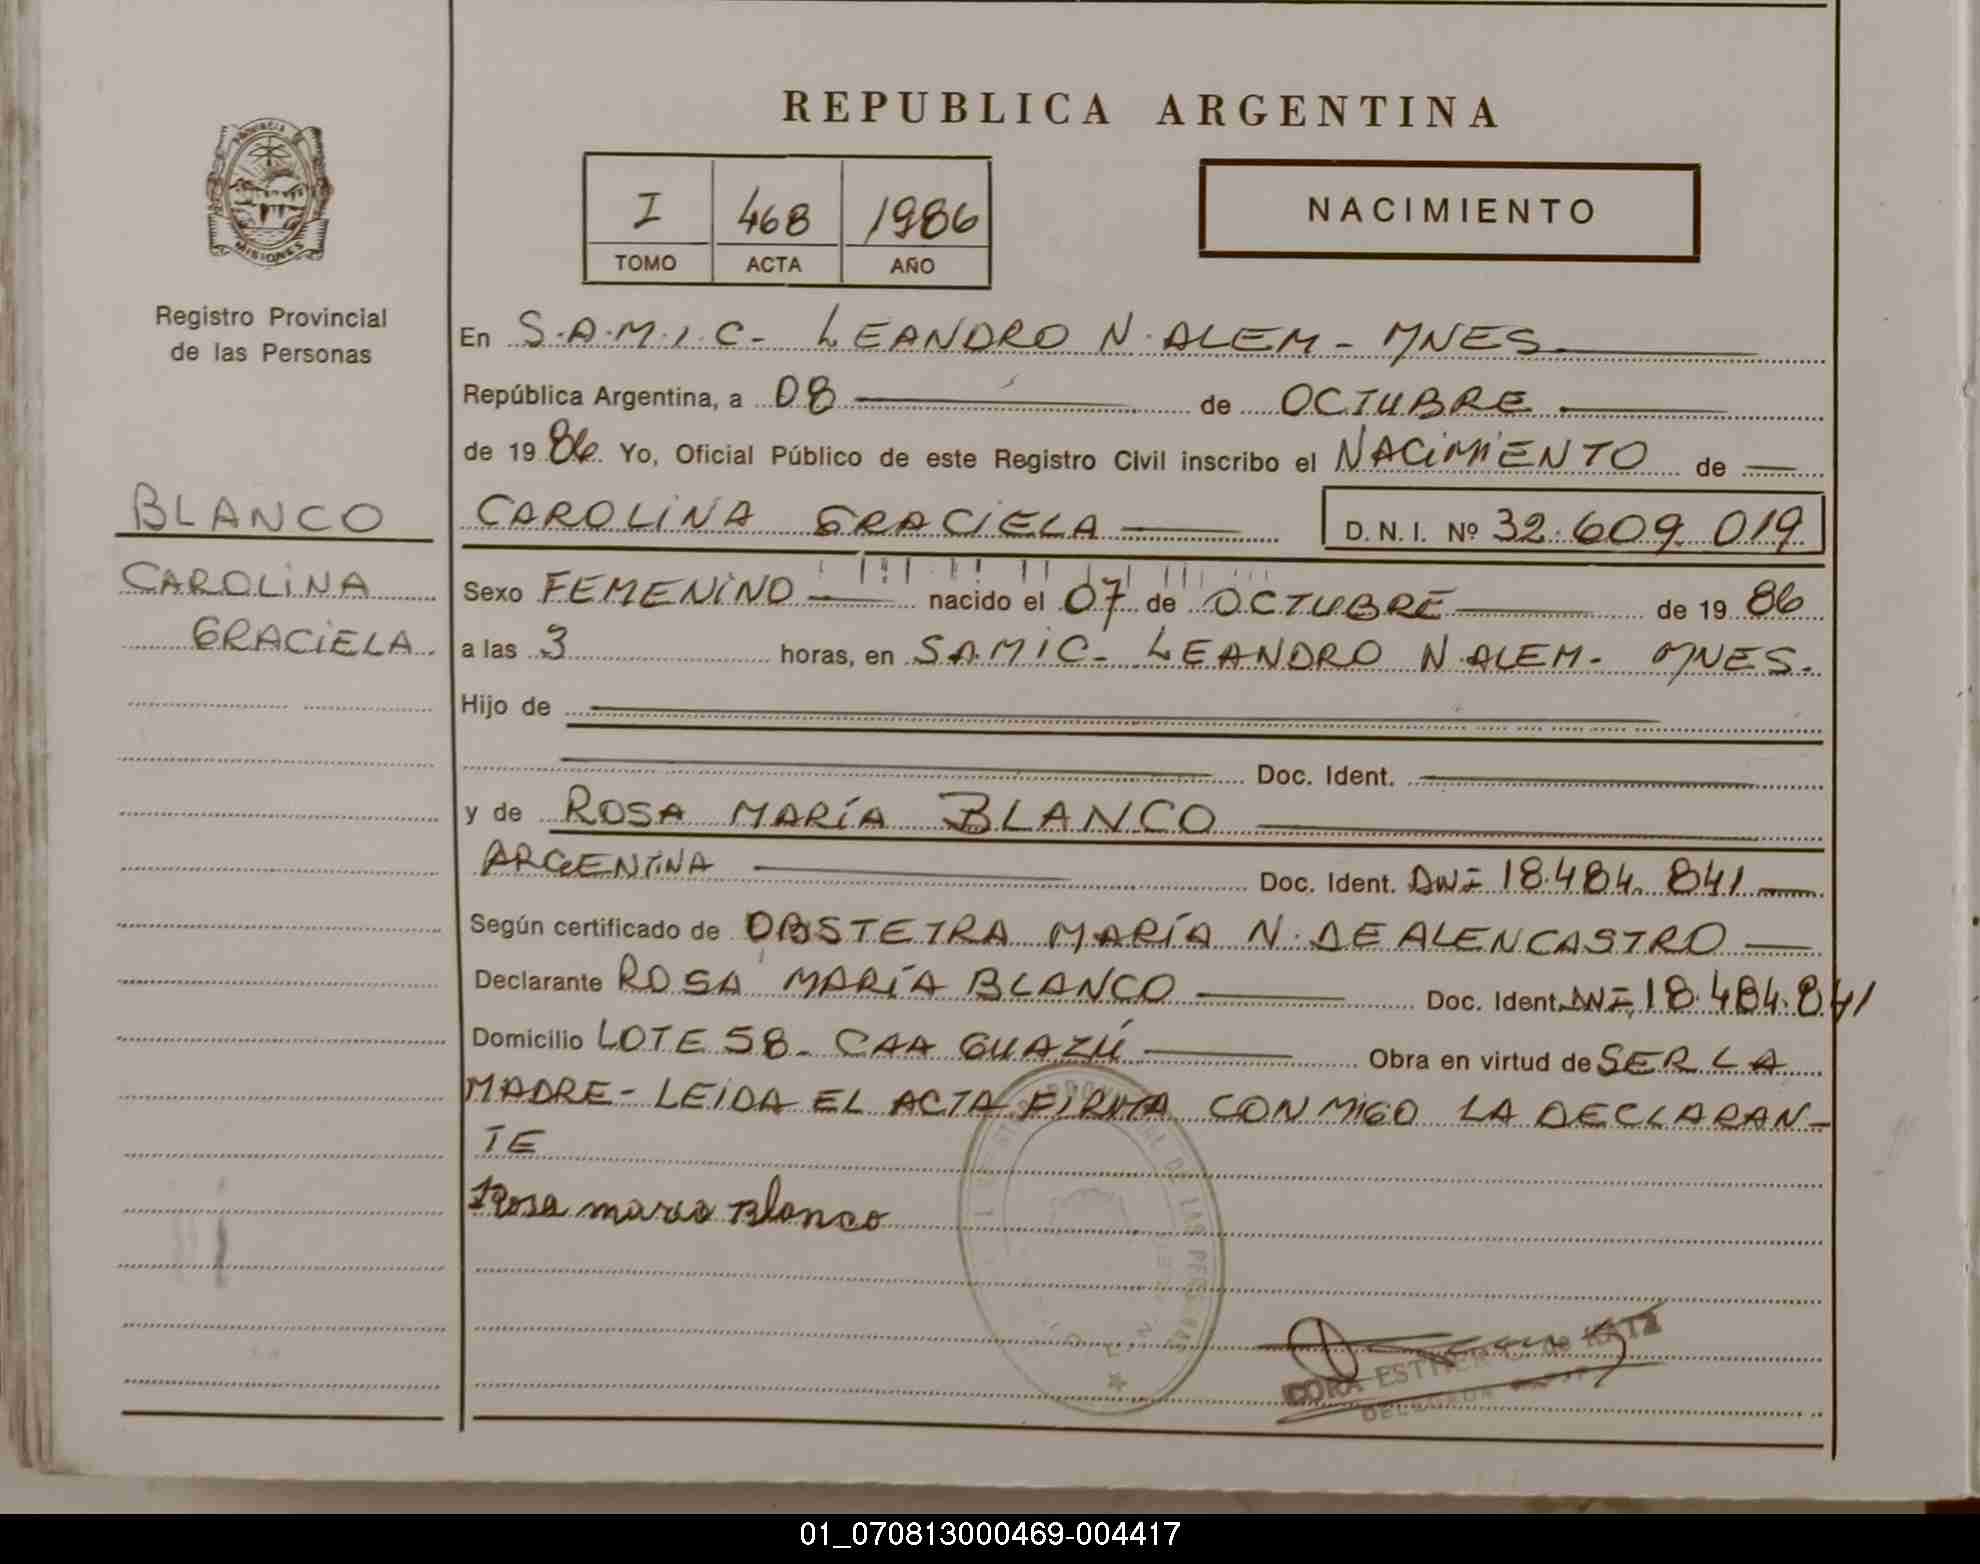 REPUBLICA ARGENTINA
PROVINCIA
MISIONES
Registro Provincial
de las Personas
I 468 1986
TOMO ACTA AÑO
NACIMIENTO
En S.A.M.I.C- LEANDRO N. ALEM - MNES
República Argentina, a 08 de OCTUBRE
de 1986 Yo, Oficial Público de este Registro Civil inscribo el NACIMIENTO de
BLANCO
CAROLINA GRACIELA D. N. I. Nº 32.609.019
CAROLINA
GRACIELA
Sexo FEMENINO nacido el 07 de OCTUBRE de 1986
a las 3 horas, en SAMIC- LEANDRO N. ALEM- MNES.
Hijo de
Doc. Ident.
y de ROSA MARÍA BLANCO
ARGENTINA Doc. Ident. DNI 18.484.841
Según certificado de OBSTETRA MARÍA N. DE ALENCASTRO
Declarante ROSA MARÍA BLANCO Doc. Ident. DNI 18.484.841
Domicilio LOTE 58- CAA GUAZÚ Obra en virtud de SER LA
MADRE- LEIDA EL ACTA FIRMA CONMIGO LA DECLARAN-
TE
Rosa maria Blanco
DE LAS PERSONAS
DORA ESTHER de
DELEGADA
01_070813000469-004417